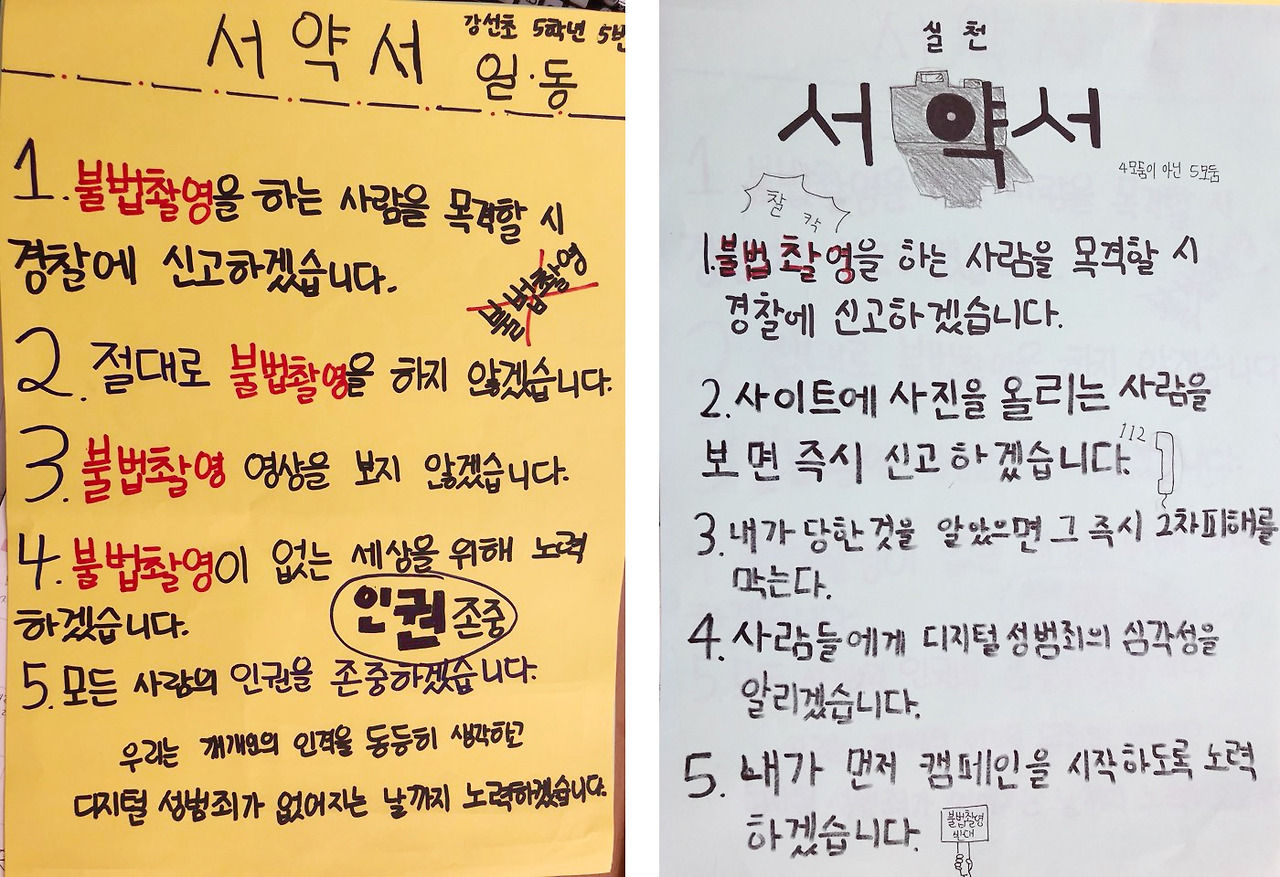 강선초 5학년 5반
서약서
일·동
1. 불법촬영을 하는 사람을 목격할 시
경찰에 신고하겠습니다.
불법촬영
2. 절대로 불법촬영을 하지 않겠습니다.
3. 불법촬영 영상을 보지 않겠습니다.
4. 불법촬영이 없는 세상을 위해 노력
하겠습니다.
인권존중
5. 모든 사람의 인권을 존중하겠습니다.
우리는 개개인의 인격을 동등히 생각하고
디지털 성범죄가 없어지는 날까지 노력하겠습니다.
실천
서약서
4모둠이 아닌 5모둠
찰칵
1. 불법촬영을 하는 사람을 목격할 시
경찰에 신고하겠습니다.
2. 사이트에 사진을 올리는 사람을
보면 즉시 신고하겠습니다.
112
3. 내가 당한것을 알았으면 그 즉시 2차피해를
막는다.
4. 사람들에게 디지털성범죄의 심각성을
알리겠습니다.
5. 내가 먼저 캠페인을 시작하도록 노력
하겠습니다.
불법촬영
반대